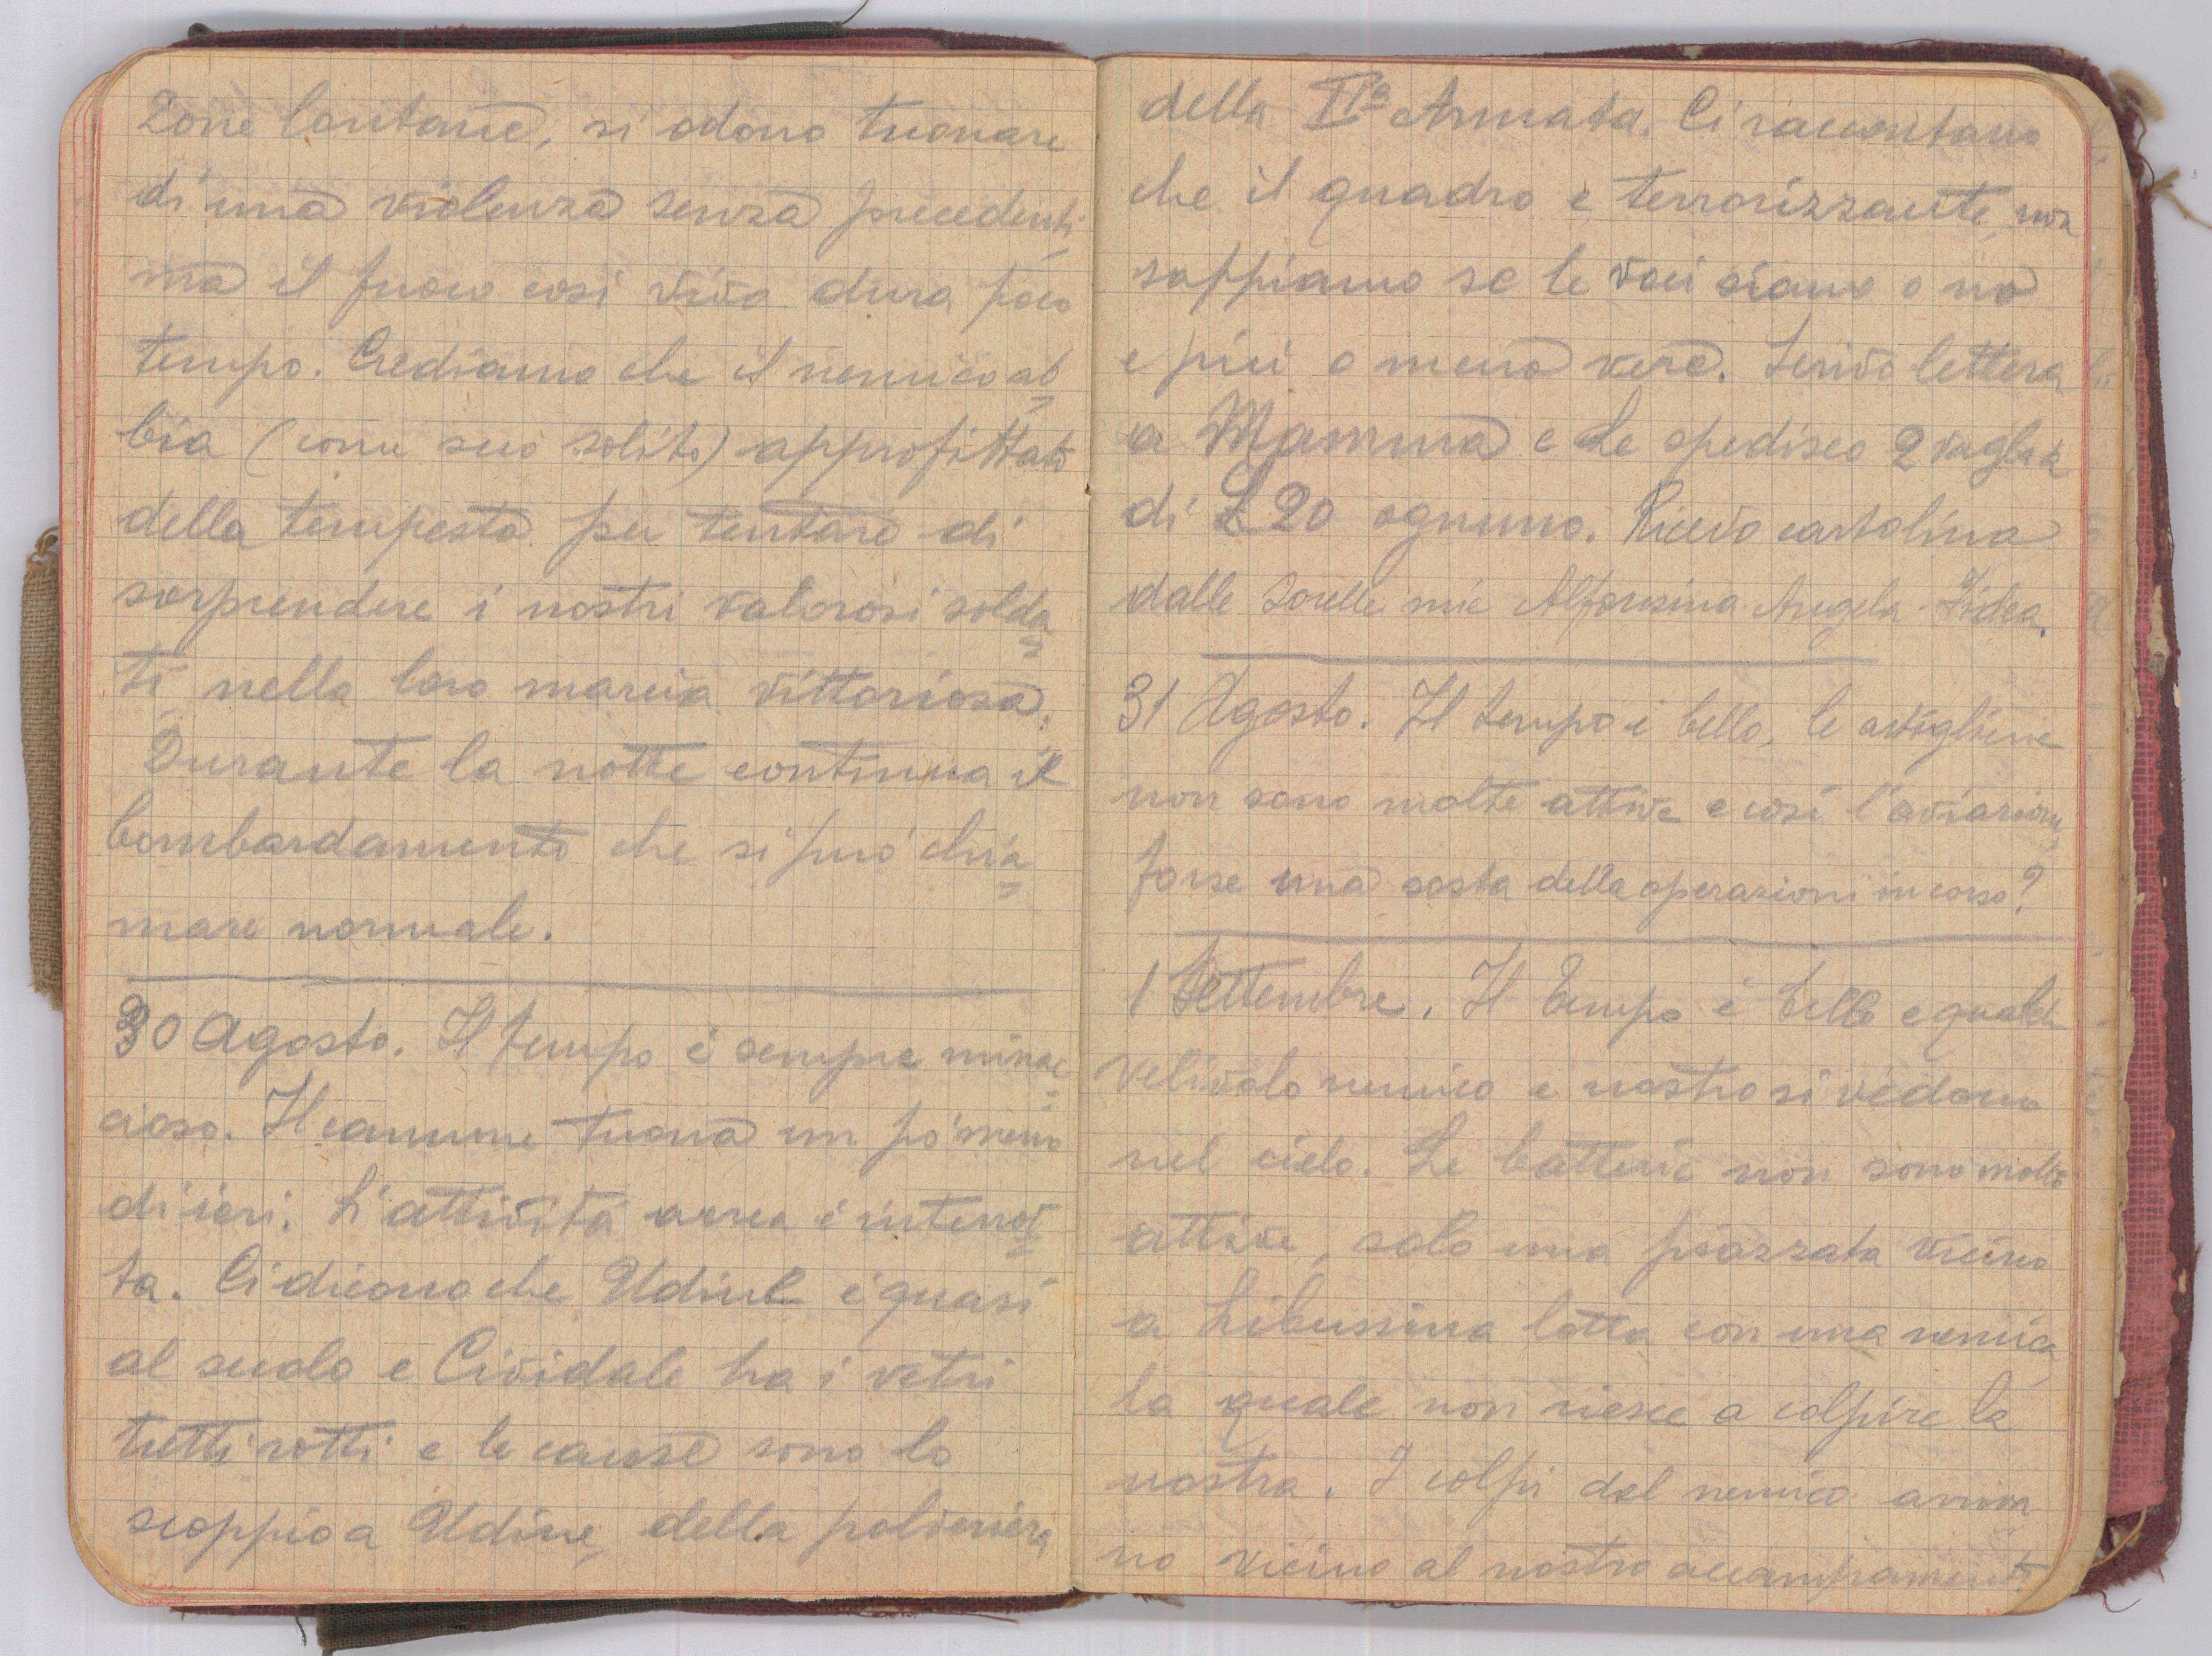 Zone lontane, si odono tuonare
di una violenza senza precedenti
ma il fuoco cosi vivo dura poco
tempo. Crediamo che il nemico ab=
bia (come suo solito) approfittato
della tempesta per tentare di
sorprendere i nostri valorosi solda=
ti nella loro marcia vittoriosa.
Durante la notte continua il
bombardamento che si puó chia=
mare normale.
30 Agosto. Il tempo é sempre minac=
cioso. Il cannone tuona un pó meno
di ieri. L'attivitá aerea é
ta. Ci dicono che Udine é quasi
al suolo e Cividale ha i vetri
tutti rotti e le cause sono lo
scoppio a Udine, della polveriera
della IIa Armata. Ci raccontano
che il quadro e terrorizzante, non
sappiamo se le voci siano o no
e piú o meno vere. Scrivo lettera
a Mamma e Le spedisco 2 vaglia
di £ 20 ognuno. Ricevo cartolina
dalle Sorelle mie Alfonsina Angela
31 Agosto. Il tempo é bello, le artiglierie
non sono molte attive e cosí l'aviazione,
forse una sosta della operazioni in corso?
1 Settembre. Il tempo é bello e qualche
velivolo nemico e nostro si vedono
nel cielo. Le batterie non sono molto
attive, solo una piazzata vicino
a Libussina lotta con una nemica
la quale non riesce a colpire la
nostra. I colpi del nemico arriva
no vicino al nostro accampamento